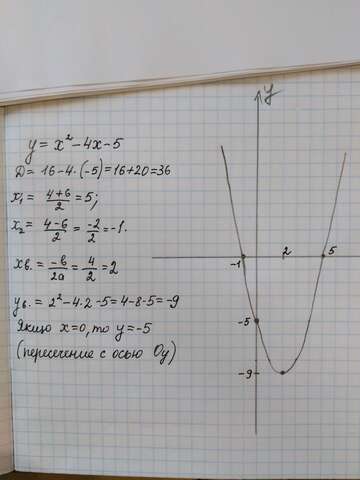 y = x² - 4x - 5
D = 16 - 4 · (-5) = 16 + 20 = 36
x₁ = (4+6)/2 = 5;
x₂ = (4-6)/2 = -2/2 = -1.
xв. = -b/2a = 4/2 = 2
yв. = 2² - 4·2 - 5 = 4 - 8 - 5 = -9
Якщо x=0, то y=-5
(пересечение с осью Oy)
y
-1 2 5
-5
-9